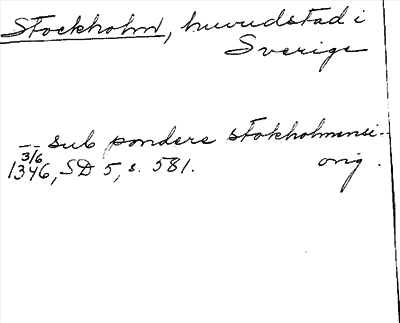 Stockholm, huvudstad i
Sverige
-- sub pondere stokholmensi-
3/6
1346, SD 5, s. 581. orig.